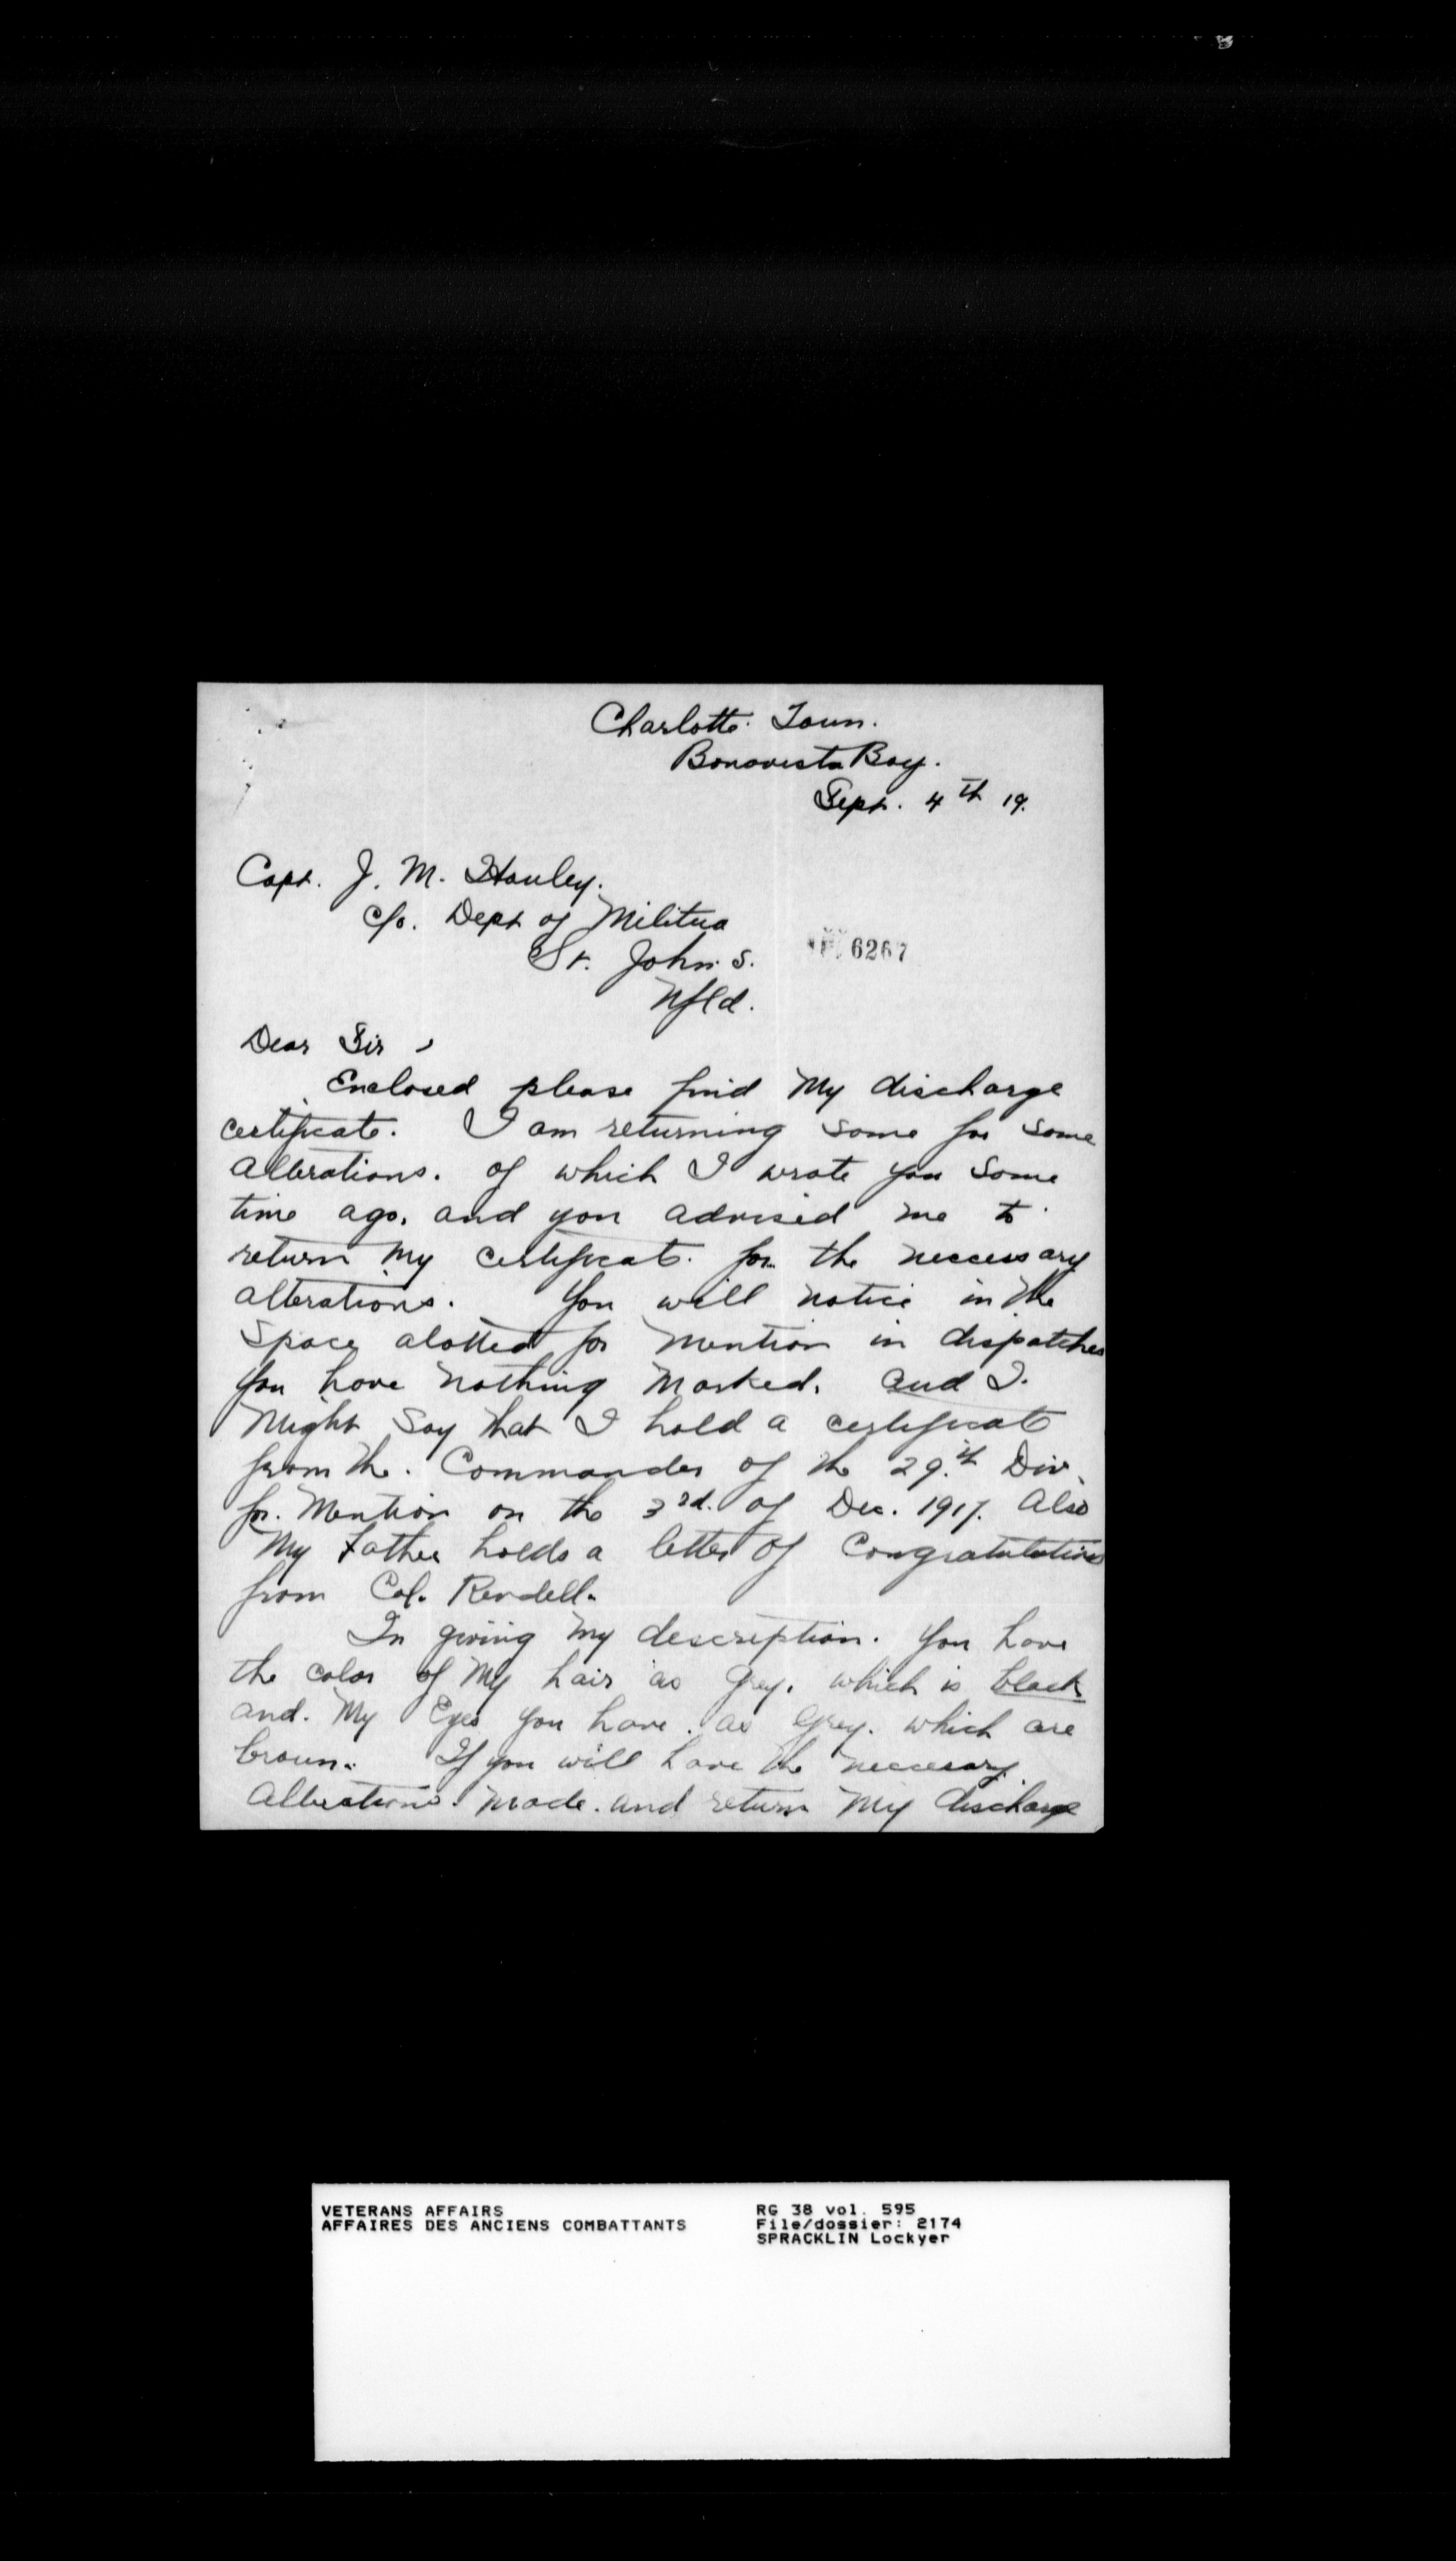 Charlotte Town.
Bonavista Bay.
Sept. 4th 19.
Capt. J. M. Howley.
c/o. Dept of Militia
St. John's.
Nfld.
6267
Dear Sir,
Enclosed please find my discharge
certificate. I am returning same for some
alterations. of which I wrote you some
time ago, and you advised me to
return my certificate. for the neccessary
alterations. You will notice in the
space alotted for mention in dispatches
you have nothing marked. and I.
might say that I hold a certificate
from the. Commander of the 29th Div.
for. mention on the 3rd. of Dec. 1917. Also
my Father holds a letter of Congratulations
from Col. Rendell.
In giving my description. you have
the color of my hair as grey. which is black
and. my Eyes you have. as Grey. which are
brown. If you will have the neccesary
alterations. made. and return my discharge
VETERANS AFFAIRS
AFFAIRES DES ANCIENS COMBATTANTS
RG 38 vol. 595
File/dossier: 2174
SPRACKLIN Lockyer